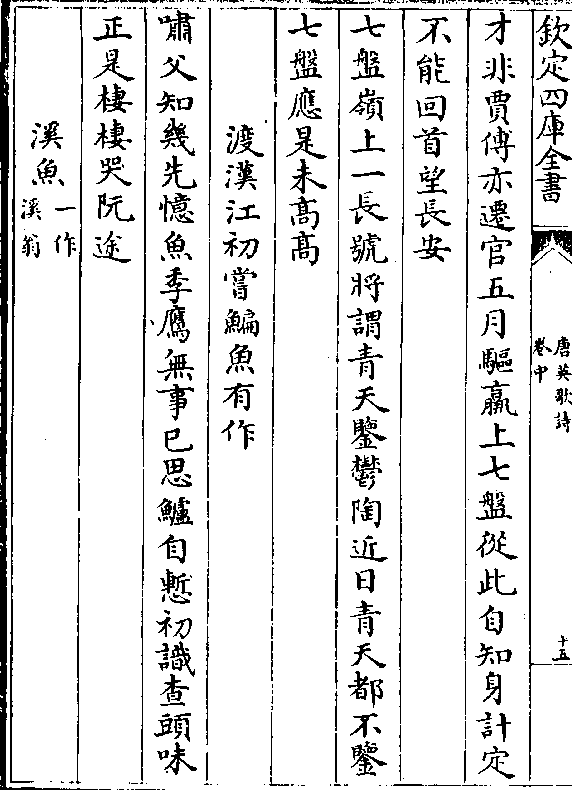 欽定四庫全書
唐英歌詩
卷中
十五
才非賈傅亦遷官五月驅羸上七盤從此自知身計定
不能回首望長安
七盤嶺上一長號將謂青天鑒鬱陶近日青天都不鑒
七盤應是未髙髙
渡漢江初嘗鯿魚有作
嘯父知幾先憶魚季鷹無事已思鱸自慙初識查頭味
正是棲棲哭阮途
溪魚一作
溪翁